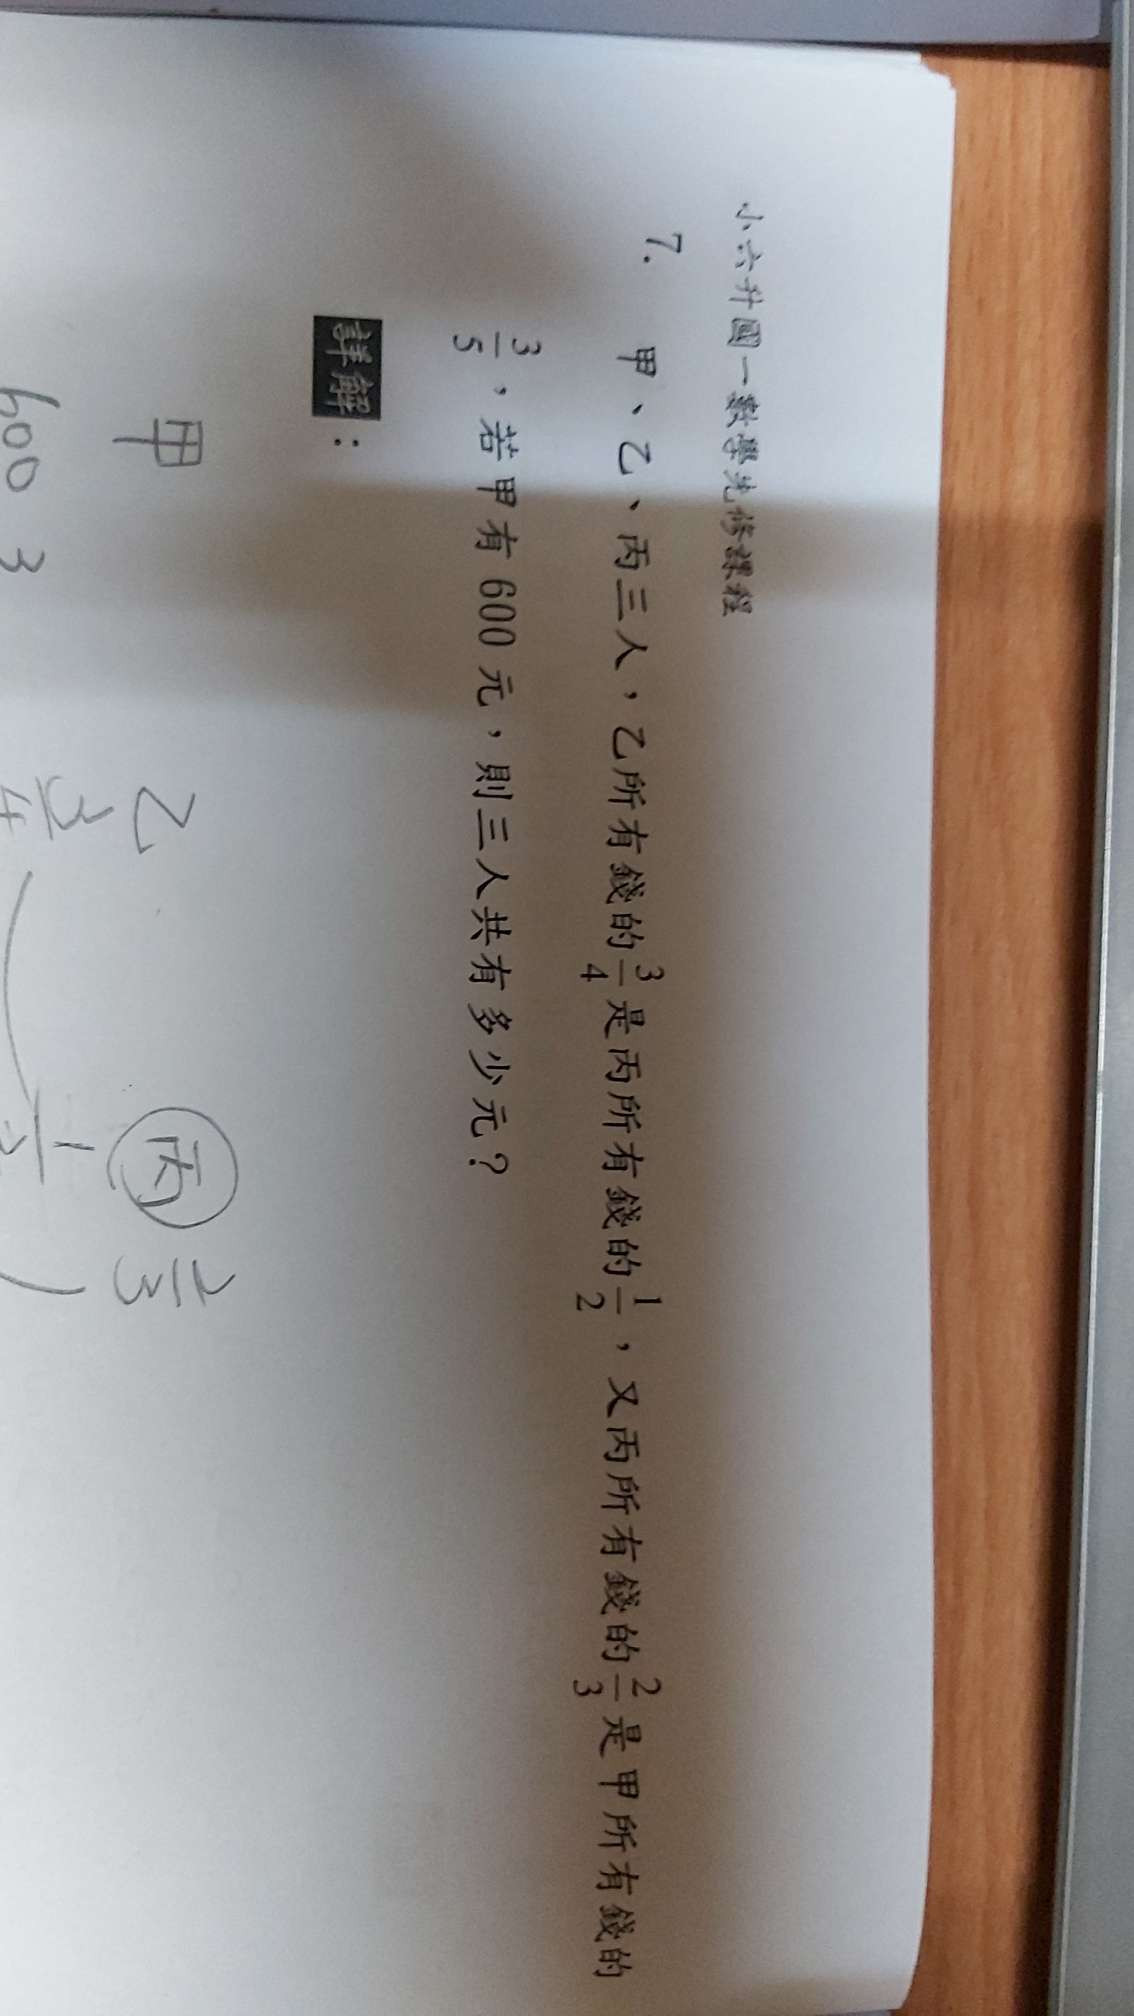 小六升國一數學先修課程
7. 甲、乙、丙三人，乙所有錢的3/4是丙所有錢的1/2，又丙所有錢的2/3是甲所有錢的
3/5，若甲有600元，則三人共有多少元？
詳解：
甲 乙 丙 2/3
600 3 3/4 1/2